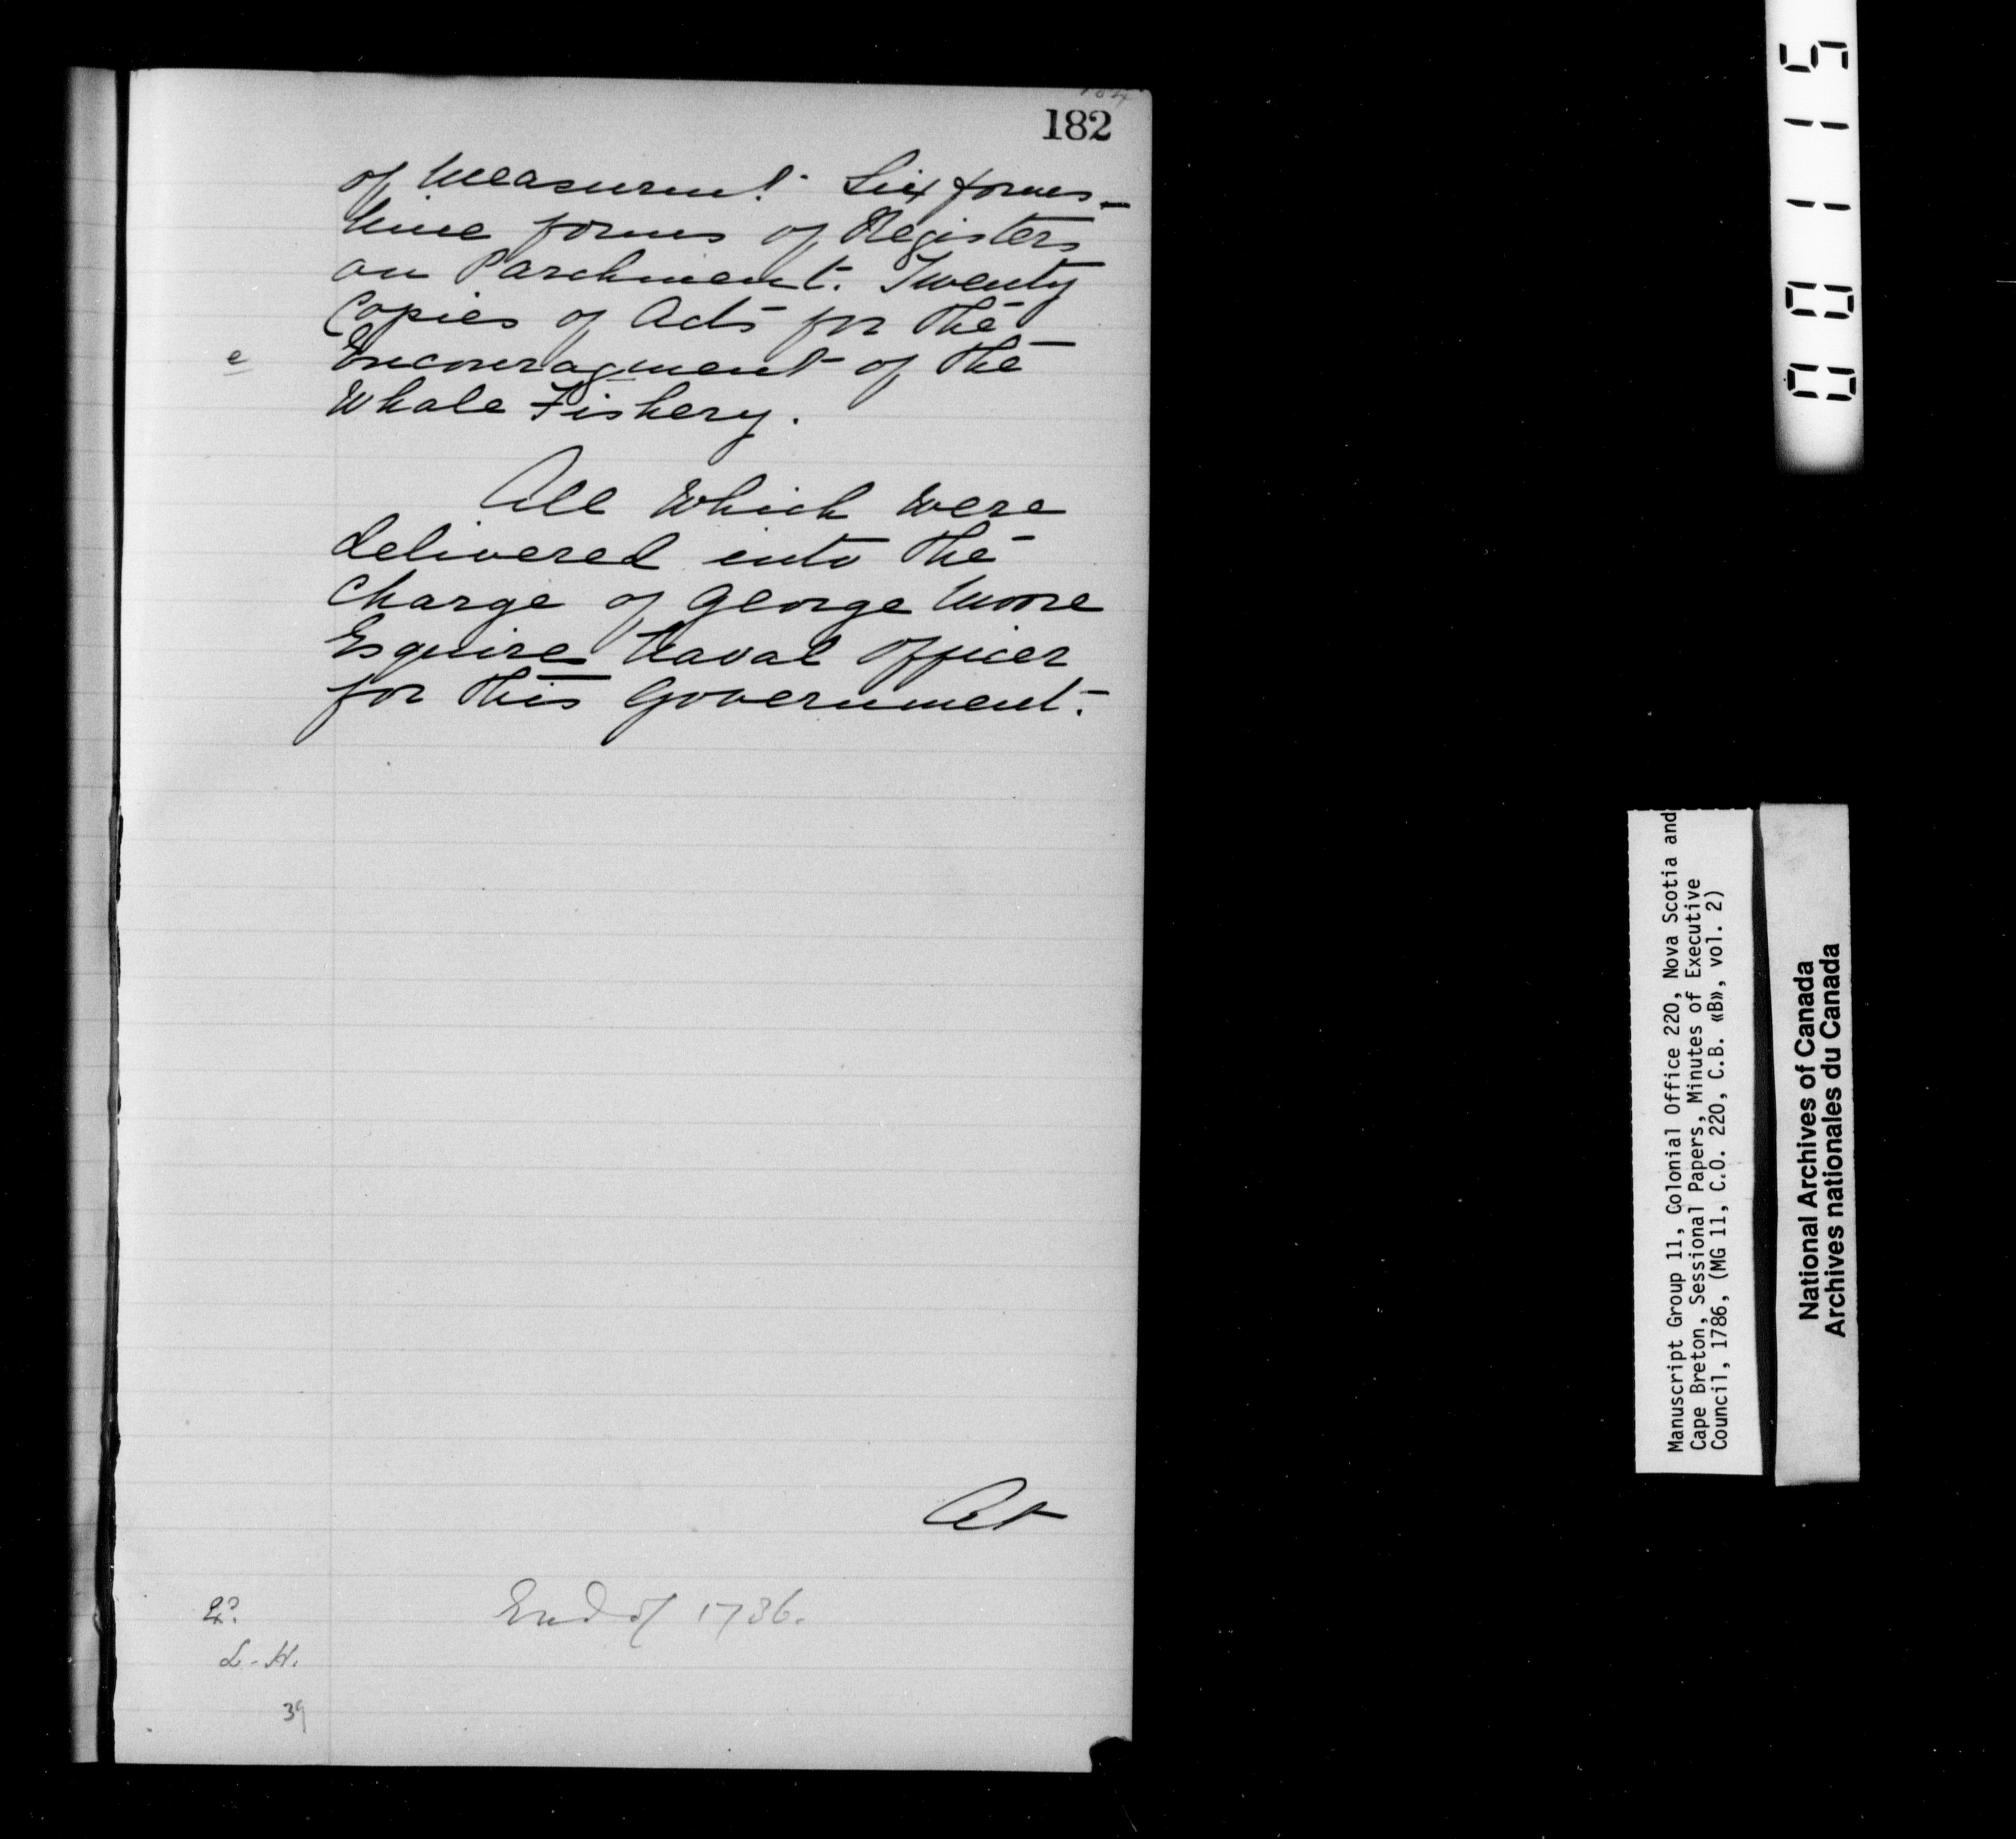 182
of Measurement. Six forms –
Nine forms of Registers
on Parchment. Twenty
Copies of Acts for the
e
Encouragment of the
Whale Fishery.
All Which Were
delivered into the
Charge of George Moore
Esquire Naval Officer
for this Government.
At
End of 1786.
L. H.
39
00115
Manuscript Group 11, Colonial Office 220, Nova Scotia and
Cape Breton, Sessional Papers, Minutes of Executive
Council, 1786, (MG 11, C.O. 220, C.B. «B», vol. 2)
National Archives of Canada
Archives nationales du Canada